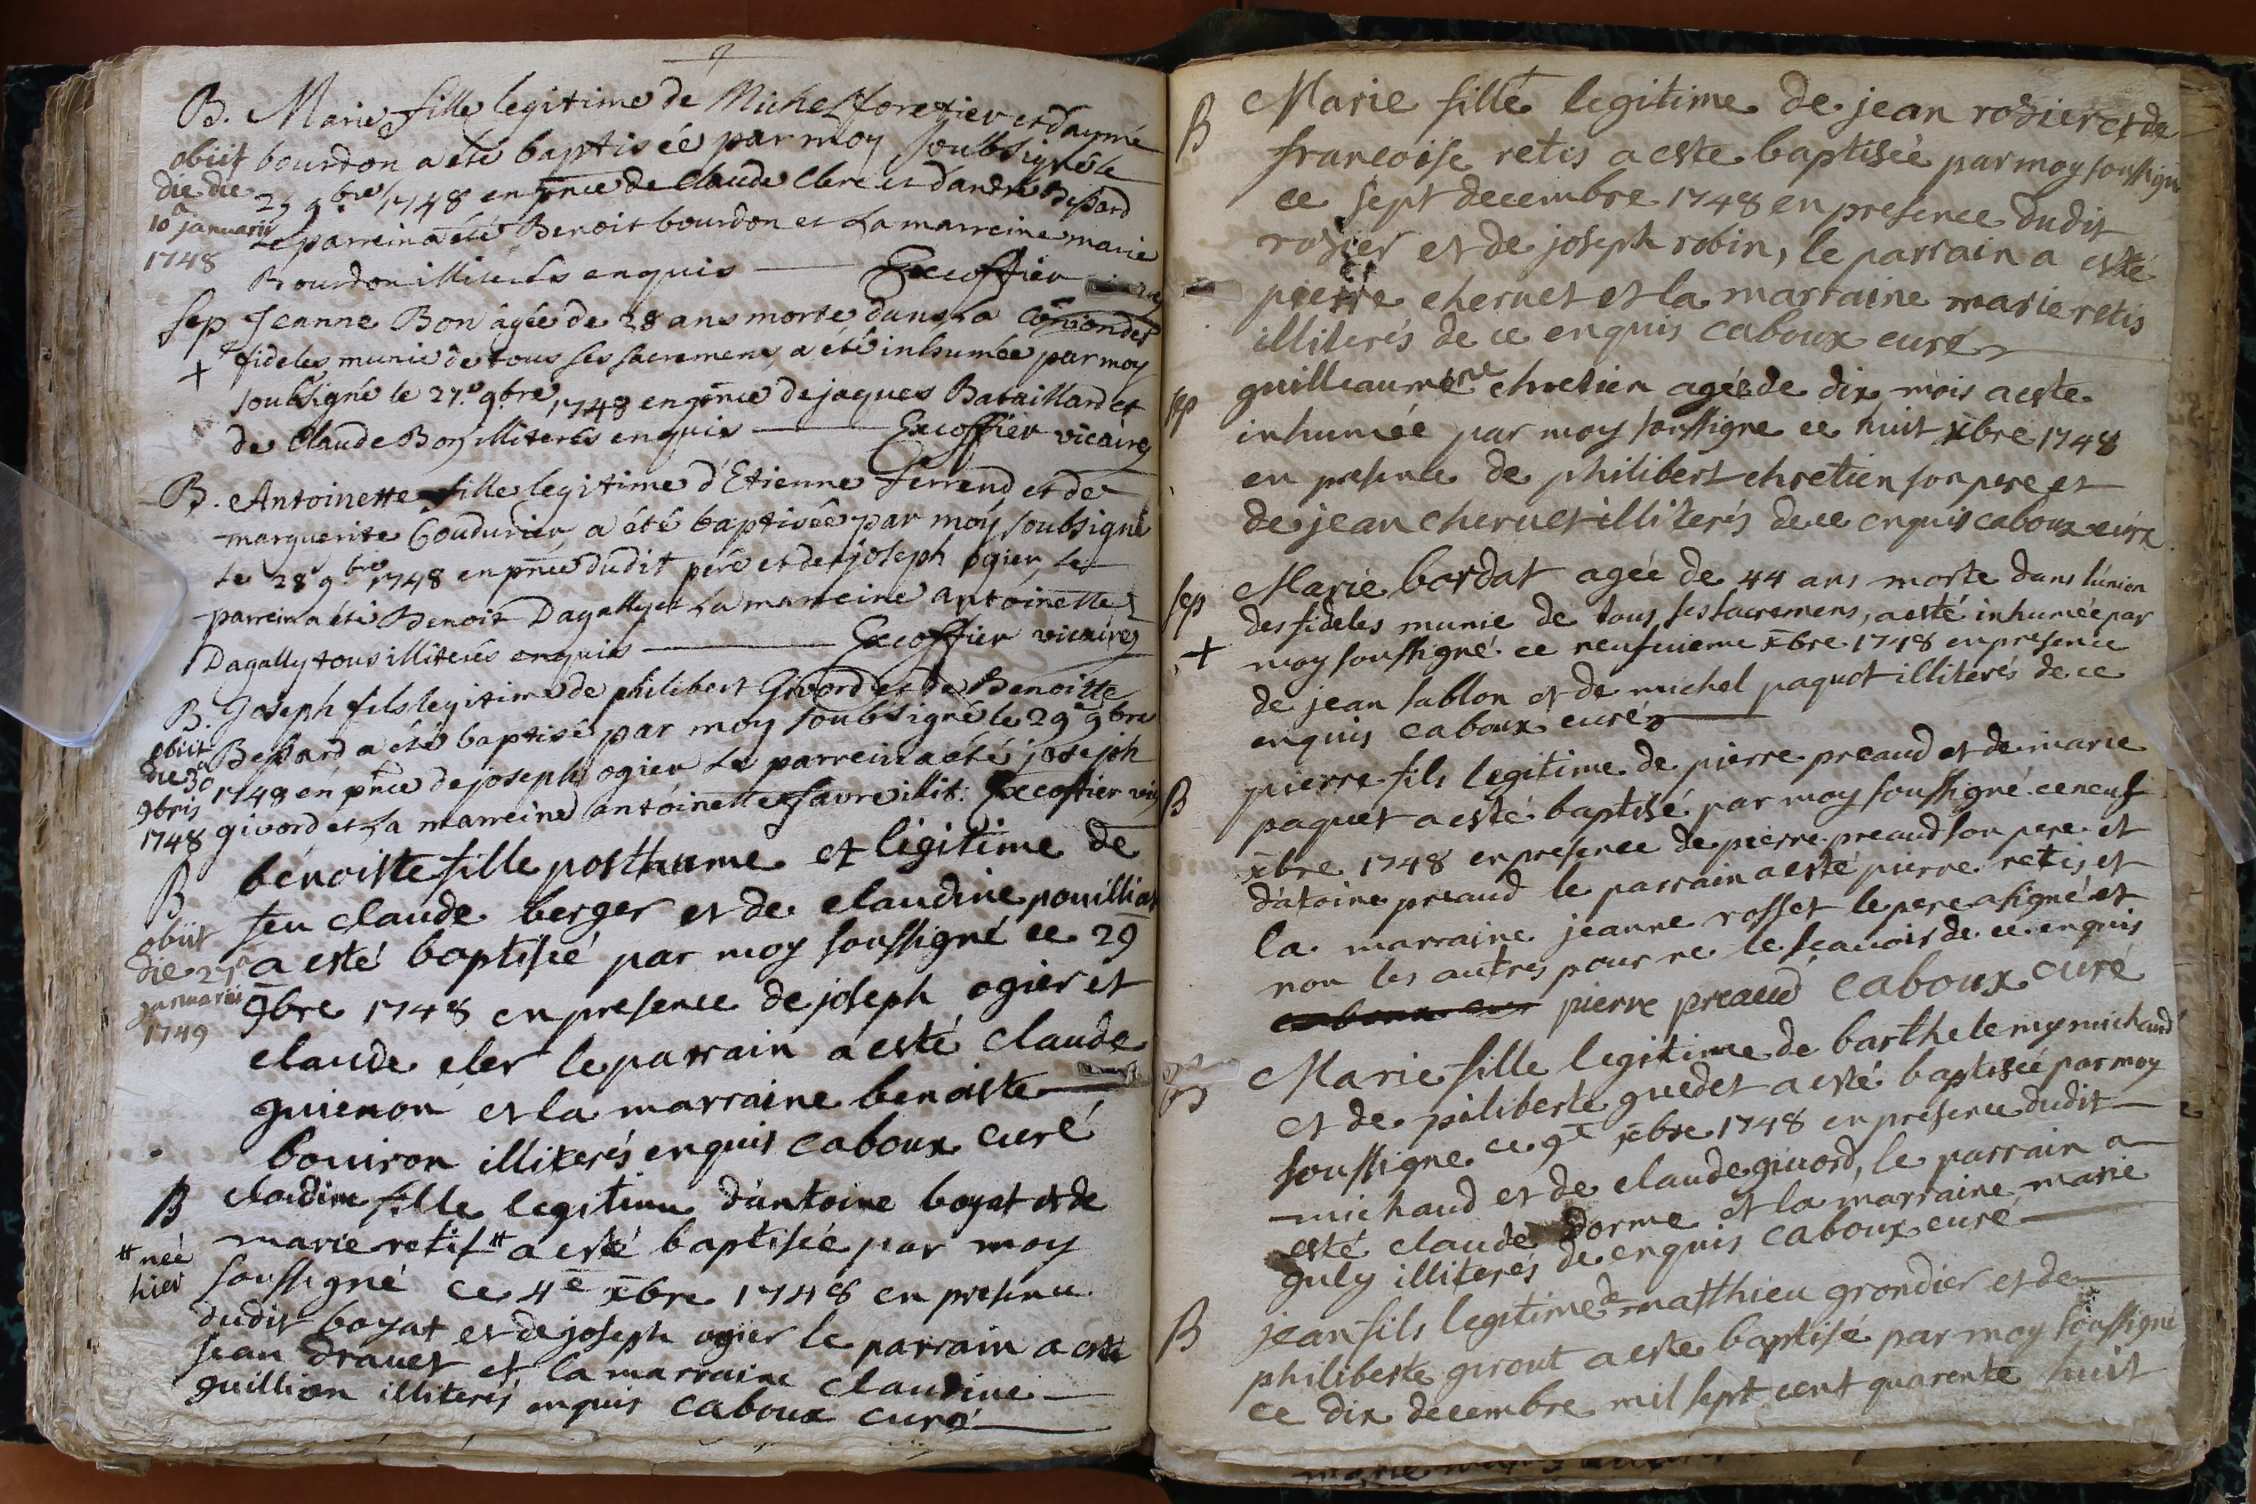 B. Marie fille legitime de Michel foretier et daymé
obiit bourdon a été baptisée par moy soubsigné le
die die 25 9.bre 1748 en pnce de Claude Clerc et dandré Bessard
10a januarii Le parrein a été Benoit bourdon et La marreine marie
1748 Bourdon illiterés enquis Excoffier
sep Jeanne Bon âgée de 28 ans morte dans La cônion des
+ fideles munie de tous ses sacremens, a été inhumée par moy
soubsigné le 27.e 9.bre 1748 en pnce de jaques Bataillard et
de Claude Bon illiterés enquis Excoffier vicaire
B. Antoinette fille legitime d'Etienne ferrend et de
marguerite Coudurier a été baptisée par moy soubsigné
Le 28 9.bre 1748 en pnce dudit pere et de joseph ogier, Le
parrein a été Benoit Dagally et La marreine antoinette
Dagally tous illiterés enquis Excoffier vicaire
B. Joseph fils legitime de philibert Givord et de Benoitte
obiit Bessard a été baptisé par moy soubsigné le 29e 9bre
die 30a 1748 en pnce de joseph ogier Le parrein a été joseph
9bris
1748 givord et La marreine antoinette favre illit: Excoffier vic
B benoiste fille posthume et legitime de
obiit feu claude berger et de claudine pouilliat
die 27a a esté baptisée par moy soussigné ce 29
januarii 9bre 1748 en presence de joseph ogier et
1749
claude cler le parrain a esté claude
guienon et la marraine benoiste
bouiron illiterés enquis caboux curé
B claudine fille legitime d'antoine boyat et de
marie retif # a esté baptisée par moy
# née hier soussigné ce 4e xbre 1748 en presence
dudit boyat et de joseph ogier le parrain a esté
jean drauet et la marraine claudine
guillion illiterés enquis caboux curé
B Marie fille legitime de jean rosier et de
francoise retis a este baptisée par moy soussigné
ce sept decembre 1748 en presence dudit
rosier et de joseph robin, le parrain a esté
pierre cheruet et la marraine marie retis
illiterés de ce enquis caboux curé
sep guilleaumene chretien agée de dix mois a este
inhumée par moy soussigne ce huit xbre 1748
en presence de philibert chretien son pere et
de jean cheruet illiterés de ce enquis caboux curé
sep Marie bordat agée de 44 ans morte dans l'union
des fideles munie de tous ses sacremens, a esté inhumée par
+ moy soussigné ce neufuieme xbre 1748 en presence
de jean sablon et de michel paquet illiterés de ce
enquis caboux curé
B pierre fils legitime de pierre preaud et de marie
paquet a esté baptisé par moy soussigné ce neuf
xbre 1748 en presence de pierre preaud son pere et
d'atoine preaud le parrain a esté pierre retis et
la marraine jeanne rosset le pere a signé et
non les autres pour ne le scauoir de ce enquis
pierre preaud caboux curé
B Marie fille legitime de barthelemy michaud
et de piliberte guedet a esté baptisée par moy
soussigne ce 9e xbre 1748 en presence dudit
michaud et de claude giuord, le parrain a
esté claude dorme et la marraine marie
guly illiterés de enquis caboux curé
B jean fils legitime de matthieu grondier et de
philiberte giront a este baptisé par moy soussigné
ce dix decembre mil sept cent quarente huit